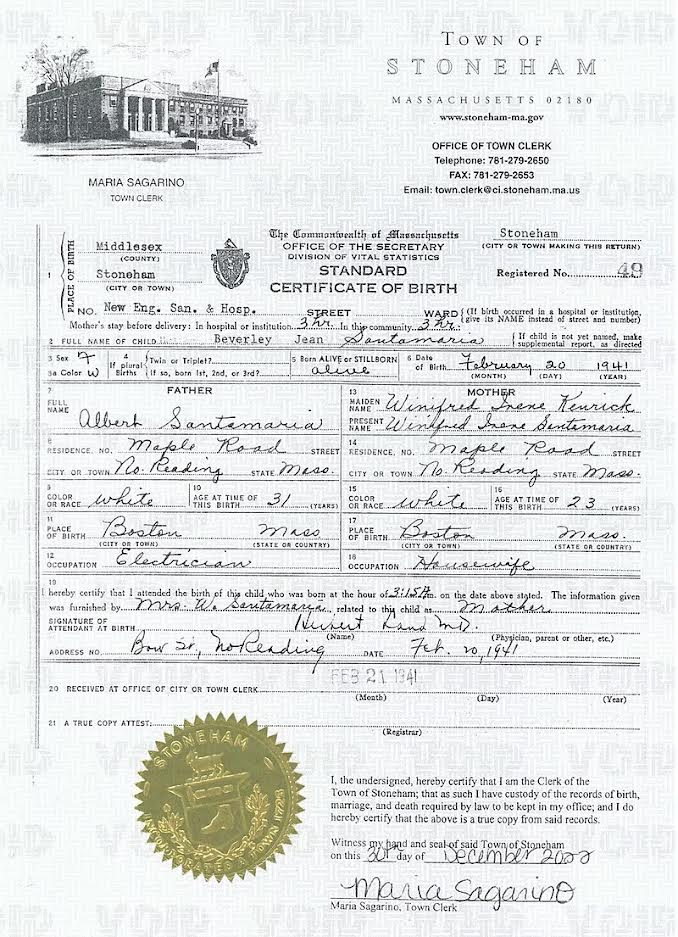 TOWN OF
STONEHAM
MASSACHUSETTS 02180
www.stoneham-ma.gov
OFFICE OF TOWN CLERK
Telephone: 781-279-2650
FAX: 781-279-2653
Email: town.clerk@ci.stoneham.ma.us
MARIA SAGARINO
TOWN CLERK
1 PLACE OF BIRTH
Middlesex
(COUNTY)
Stoneham
(CITY OR TOWN)
The Commonwealth of Massachusetts
OFFICE OF THE SECRETARY
DIVISION OF VITAL STATISTICS
STANDARD
CERTIFICATE OF BIRTH
Stoneham
(CITY OR TOWN MAKING THIS RETURN)
Registered No. 49
NO. New Eng. San. & Hosp. STREET WARD (If birth occurred in a hospital or institution, give its NAME instead of street and number)
Mother's stay before delivery: In hospital or institution 3 hr. In this community 3 hr.
2 FULL NAME OF CHILD Beverley Jean Santamaria (If child is not yet named, make supplemental report, as directed
3 Sex F
3a Color W
4 If plural Births Twin or Triplet? If so, born 1st, 2nd, or 3rd?
5 Born ALIVE or STILLBORN alive
6 Date of Birth February 20 1941
(MONTH) (DAY) (YEAR)
FATHER
7 FULL NAME Albert Santamaria
8 RESIDENCE, NO. Maple Road STREET
CITY OR TOWN No. Reading STATE Mass.
9 COLOR OR RACE white 10 AGE AT TIME OF THIS BIRTH 31 (YEARS)
11 PLACE OF BIRTH Boston Mass
(CITY OR TOWN) (STATE OR COUNTRY)
12 OCCUPATION Electrician
MOTHER
13 MAIDEN NAME Winifred Irene Kenrick
PRESENT NAME Winifred Irene Santamaria
14 RESIDENCE, NO. Maple Road STREET
CITY OR TOWN No. Reading STATE Mass.
15 COLOR OR RACE white 16 AGE AT TIME OF THIS BIRTH 23 (YEARS)
17 PLACE OF BIRTH Boston Mass.
(CITY OR TOWN) (STATE OR COUNTRY)
18 OCCUPATION Housewife
19
I hereby certify that I attended the birth of this child who was born at the hour of 3:15A m. on the date above stated. The information given
was furnished by Mrs. W. Santamaria, related to this child as Mother
SIGNATURE OF ATTENDANT AT BIRTH M.D.
(Name) (Physician, parent or other, etc.)
ADDRESS NO. Bow St., No Reading DATE Feb. 20, 1941
FEB 21 1941
20 RECEIVED AT OFFICE OF CITY OR TOWN CLERK
(Month) (Day) (Year)
21 A TRUE COPY ATTEST:
(Registrar)
STONEHAM
INCORPORATED A TOWN 1725
I, the undersigned, hereby certify that I am the Clerk of the
Town of Stoneham; that as such I have custody of the records of birth,
marriage, and death required by law to be kept in my office; and I do
hereby certify that the above is a true copy from said records.
Witness my hand and seal of said Town of Stoneham
on this 30th day of December 2022
Maria Sagarino
Maria Sagarino, Town Clerk
VOID